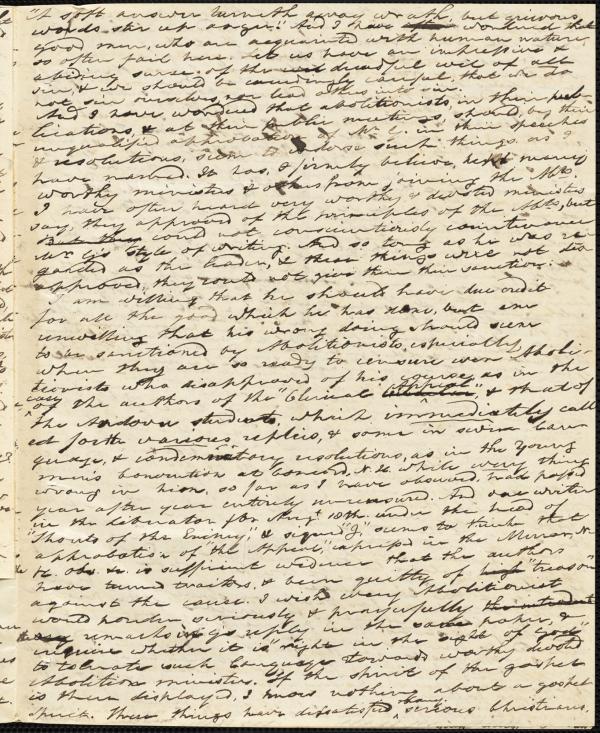 "A soft answer turneth away wrath, but grievous
words stir up anger." And I have often wondered that
good men, who are acquainted with human nature,
so often fail here. Let us have an impressive &
abiding sense of the dreadful evil of all
sin, & we should be exceedingly careful, that we do
not sin ourselves, nor lead others into sin.
And I have wondered that abolitionists, in their pub-
lications, & at their public meetings, should, by their
unqualified approbation of Mr. G. in their speeches
& resolutions, seem to endorse such things as I
have named. It has, I firmly believe, kept many
worthy ministers & others from joining the
I have often heard very worthy & devoted ministers
say, they approved of the principles of the but
could not conscientiously countenance
Mr. G's style of writing. And so long as he was re-
garded as the leader, & these things were not dis-
approved, they could not give them their sanction.
I am willing that he should have due credit
for all the good which he has done, but am
unwilling that his wrong doing should seem
to be sanctioned by Abolitionists, especially
when they are so ready to censure even Aboli-
tionists who disapproved of his course, as in the
case of the authors of the "Clerical Appeal," & that of
the Andover students, which immediately call-
ed forth various replies, & some in severe lan-
guage, & condemnatory resolutions, as in the Young
men's Convention at Concord, N. H. while every thing
wrong in him, so far as I have observed, had passed
year after year entirely uncensured. And one writer
in the Liberator for Augt. 18th. under the head of
"Shouts of the Enemy," & signed "J," seems to think that
approbation of "the Appeal," expressed in the Mirror, N.
Y. Obs. &c. is sufficient evidence that the authors
have turned traitors, & been guilty of "treason
against the cause. I wish every Abolitionist
would ponder seriously & prayerfully
remarks in G's reply in the same paper, &
inquire whether it is "right in the sight of God"
to tolerate such language towards worthy devoted
Abolition ministers. If the spirit of the gospel
is there displayed, I know nothing about a gospel
spirit. These things have dissatisfied many serious Christians,